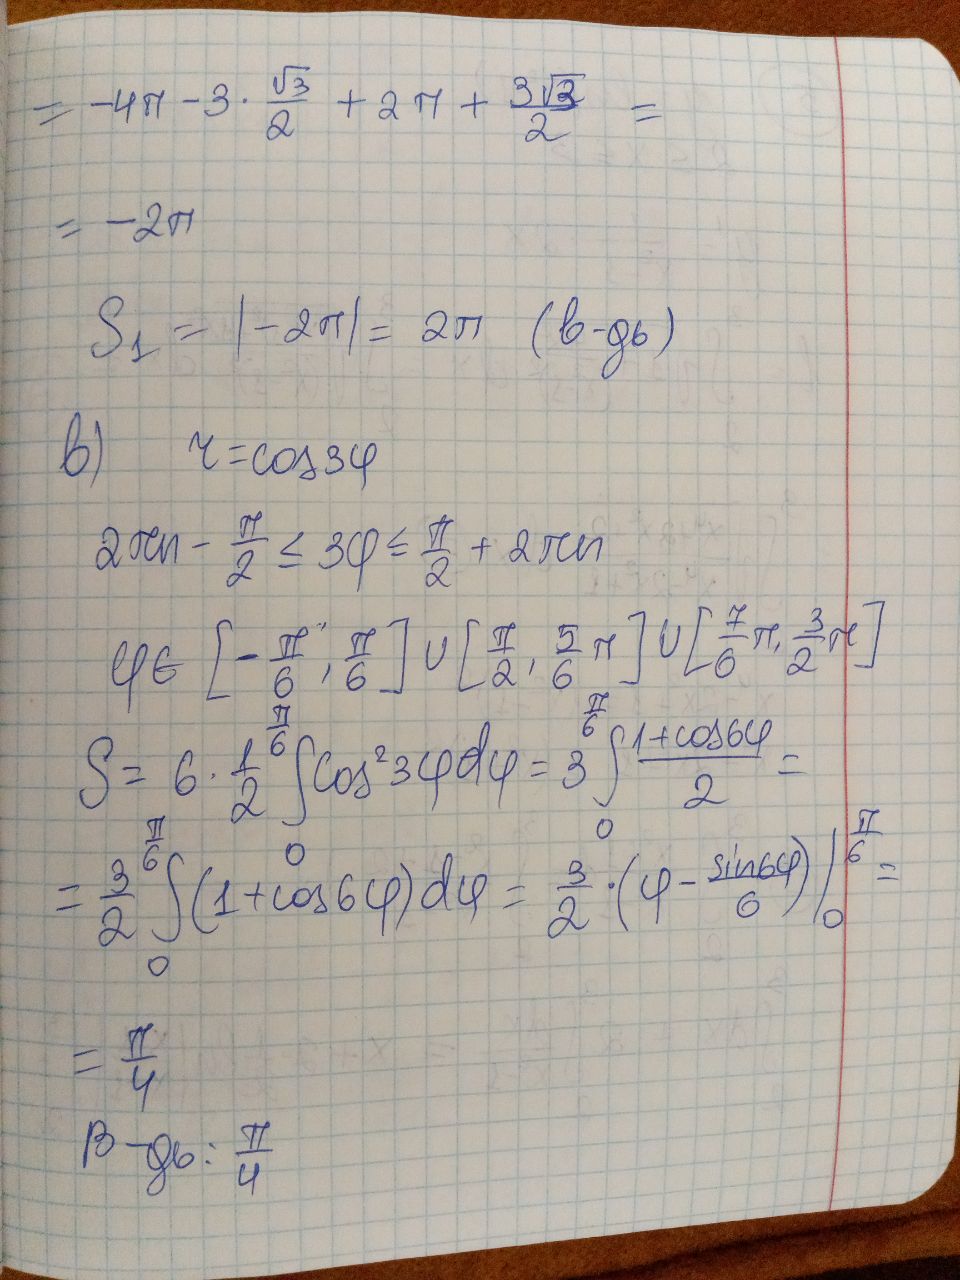 = -4π - 3 · √3/2 + 2π + 3√3/2 =
= -2π
S₁ = |-2π| = 2π (в-дь)
в) r = cos3φ
2πn - π/2 ≤ 3φ ≤ π/2 + 2πn
φ ∈ [-π/6; π/6] ∪ [π/2; 5/6 π] ∪ [7/6 π, 3/2 π]
S = 6 · 1/2 ∫₀^(π/6) cos²3φdφ = 3 ∫₀^(π/6) (1+cos6φ)/2 =
= 3/2 ∫₀^(π/6) (1+cos6φ)dφ = 3/2 · (φ - sin6φ/6) |₀^(π/6) =
= π/4
В-дь: π/4